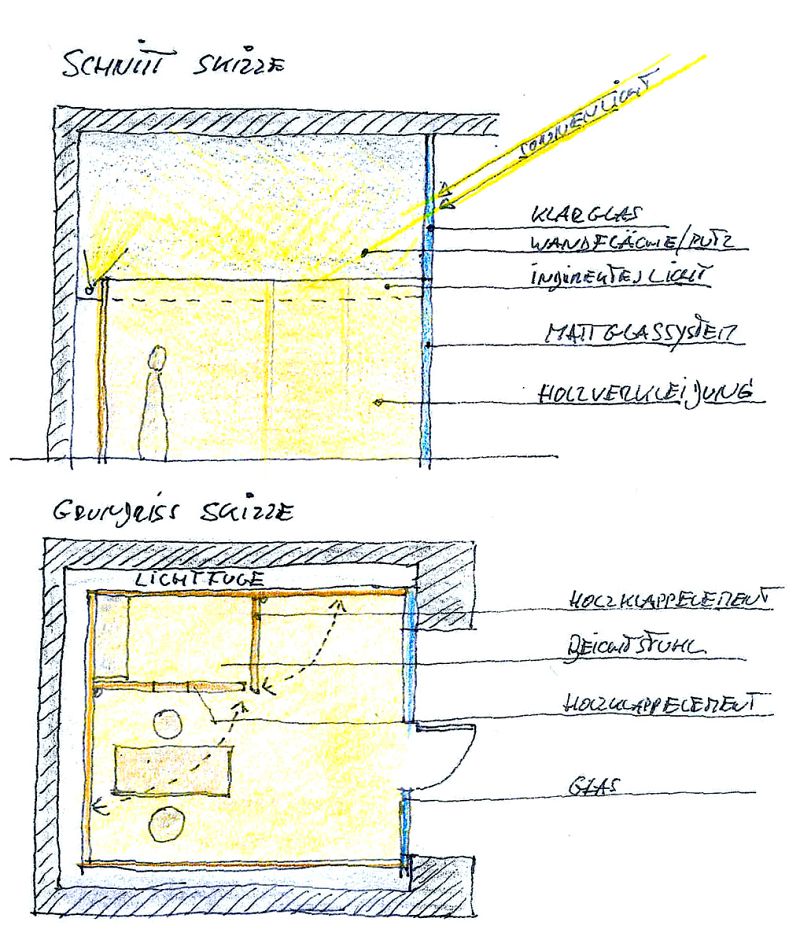 SCHNITT SKIZZE
SONNENLICHT
KLARGLAS
WANDFLÄCHE/PUTZ
INDIREKTES LICHT
MATTGLASSYSTEM
HOLZVERKLEIDUNG
GRUNDRISS SKIZZE
LICHTFUGE
HOLZKLAPPELEMENT
BEICHTSTUHL
HOLZKLAPPELEMENT
GLAS